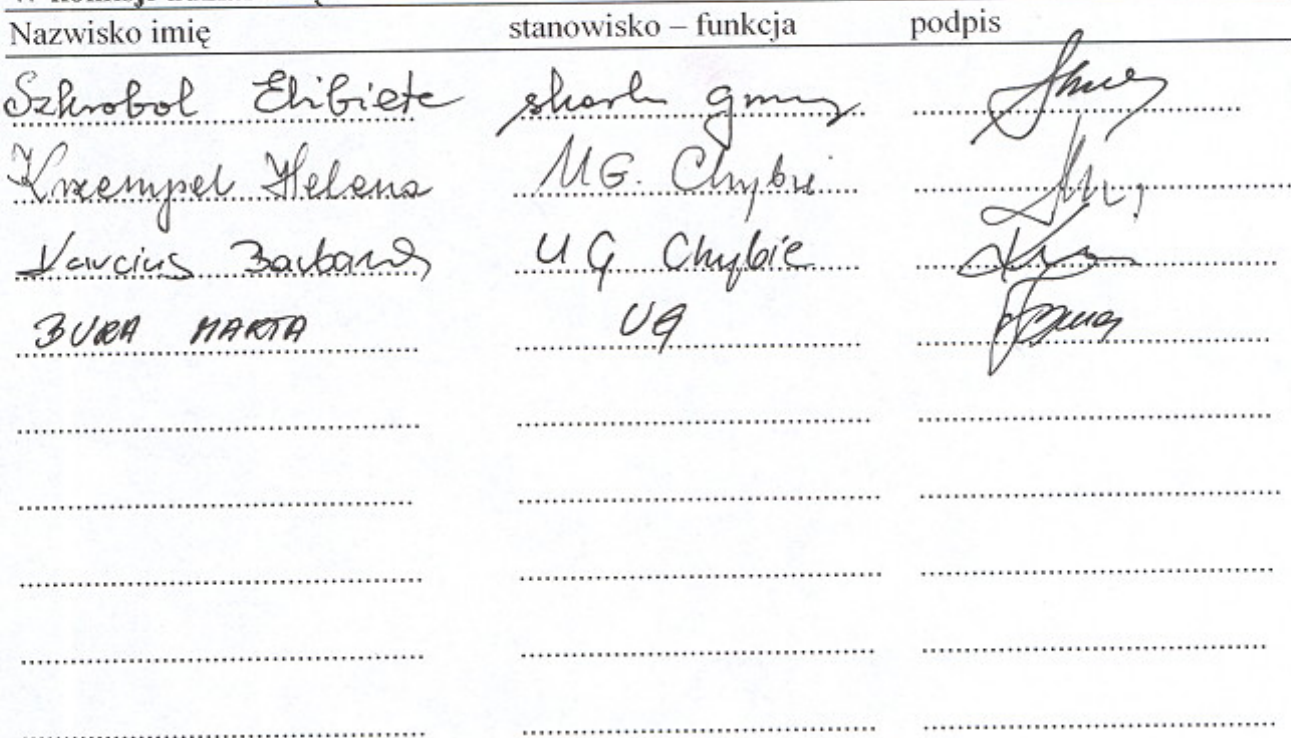 Nazwisko imię stanowisko – funkcja podpis
Szkrobol Elżbieta skarb gminy
Krzempel Helena UG. Chybie
Barbara UG Chybie
BURA MARTA UG